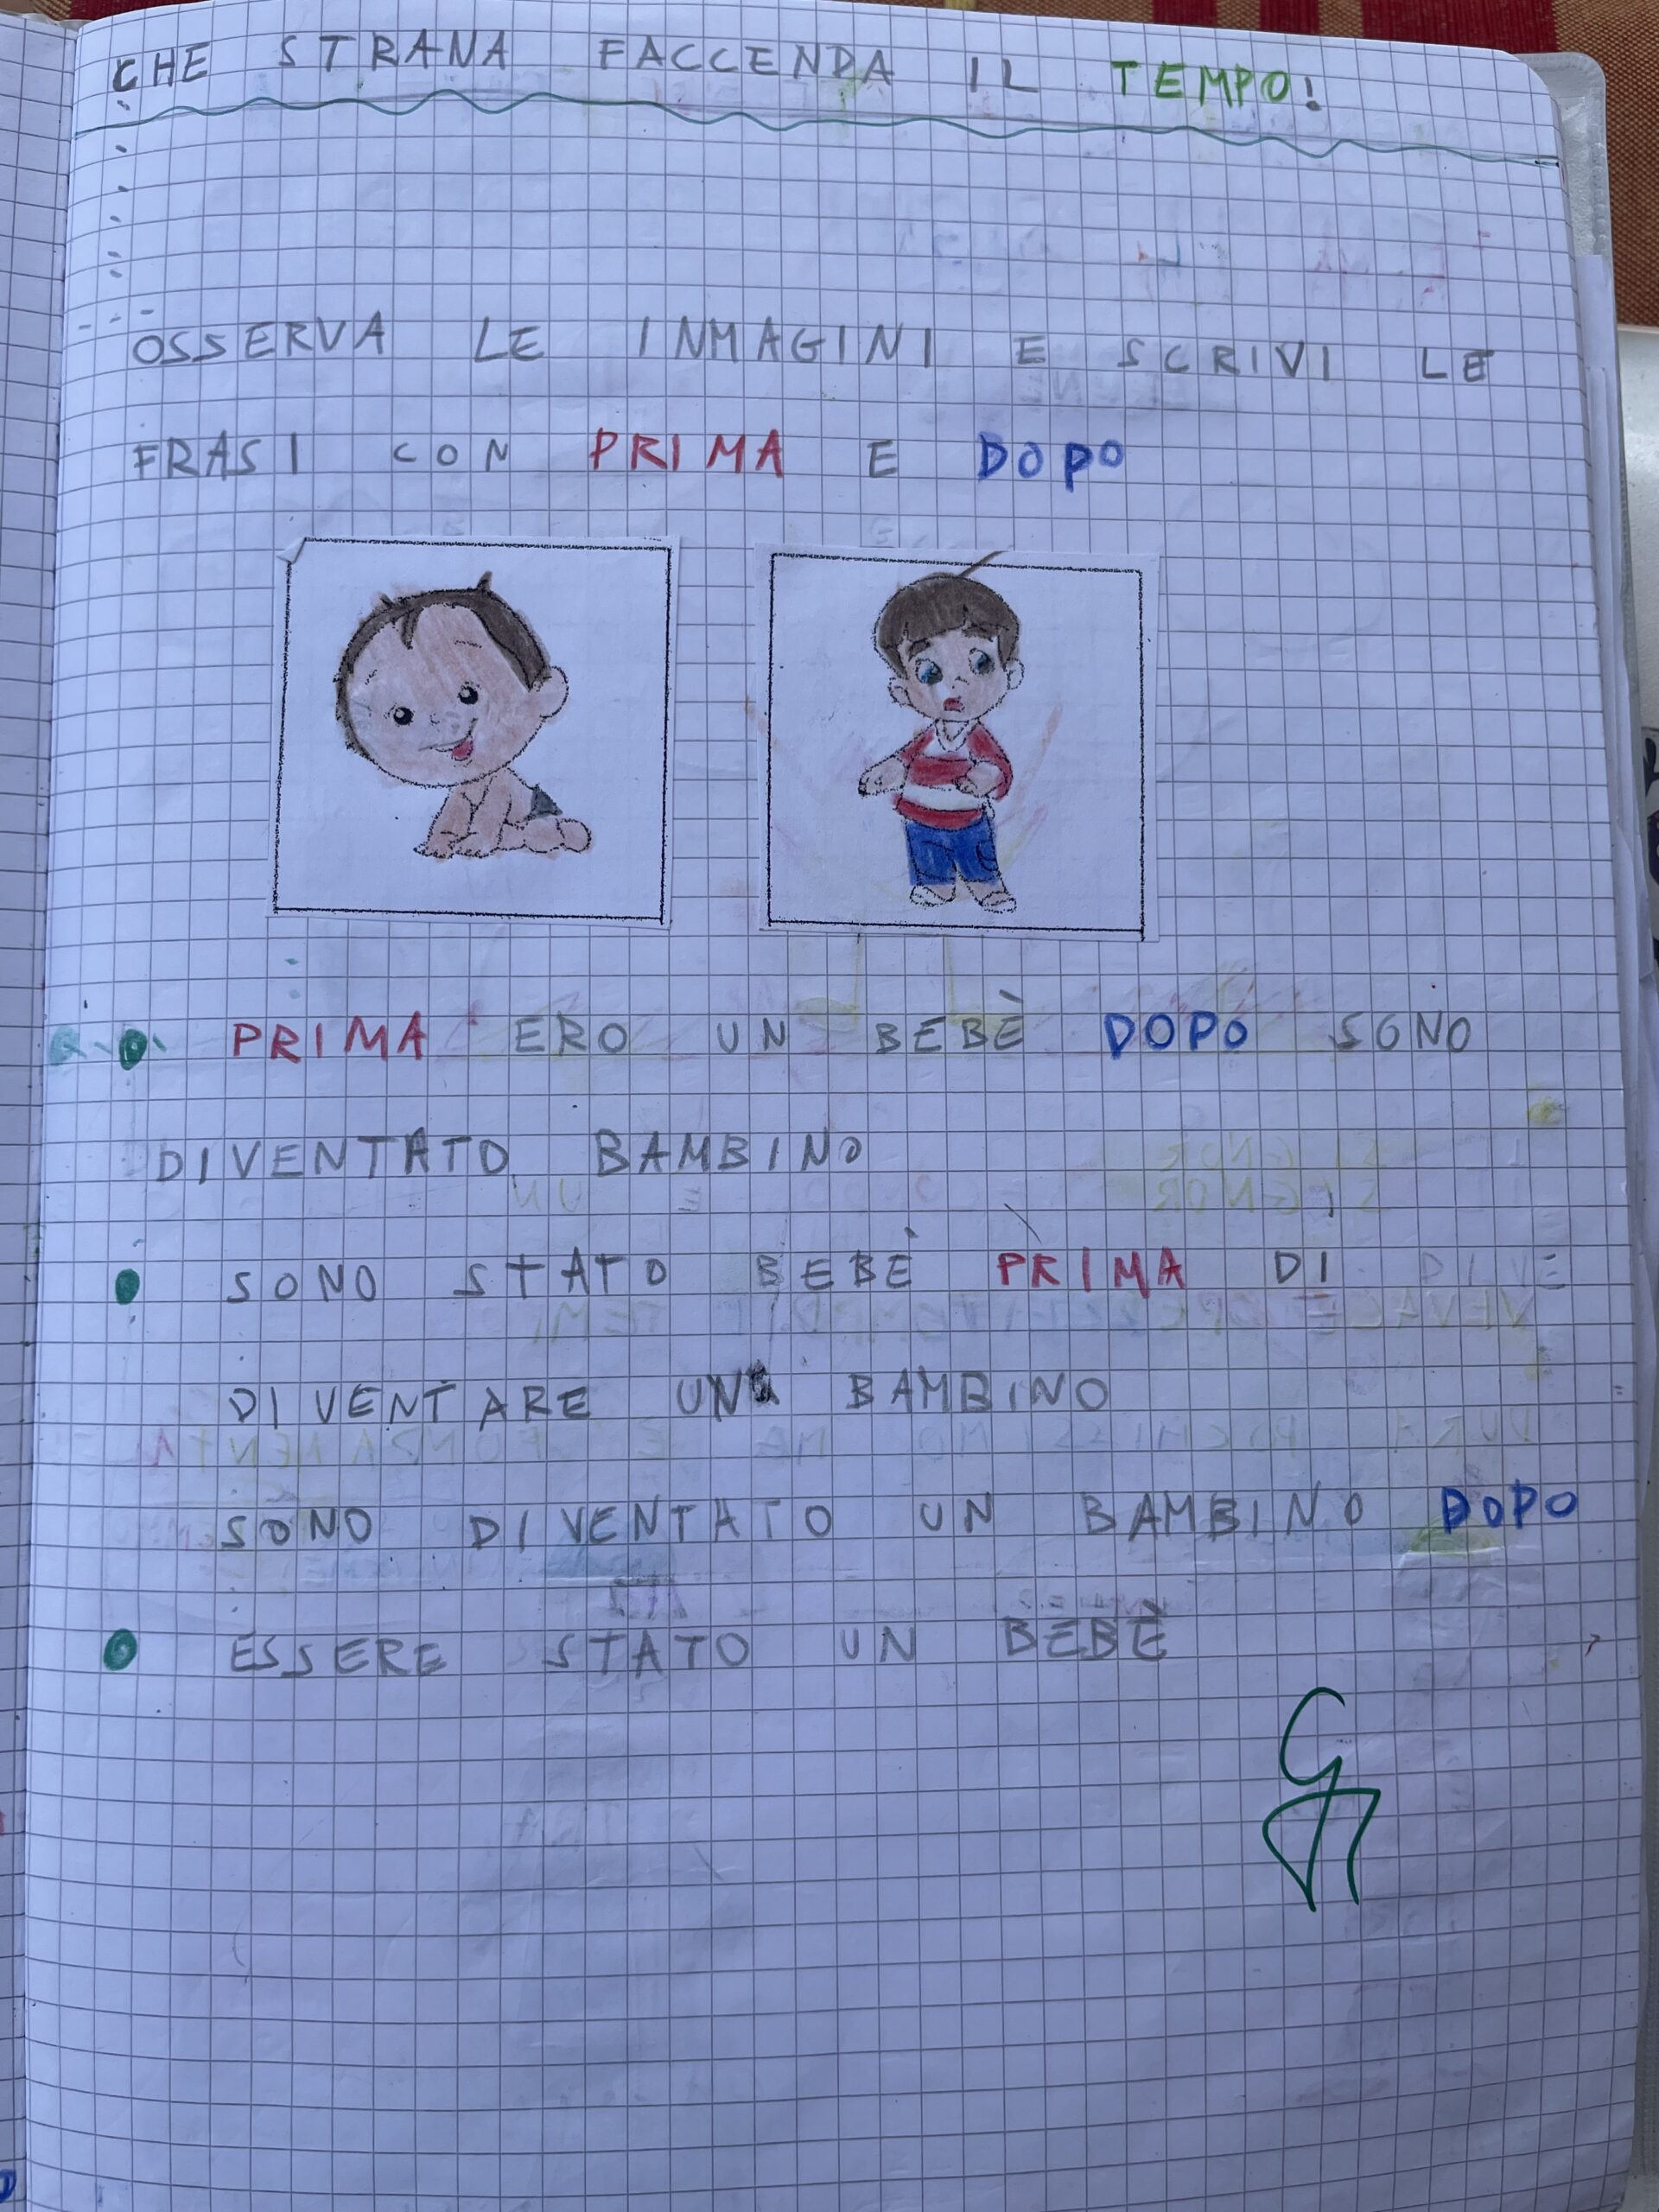 CHE STRANA FACCENDA IL TEMPO!
OSSERVA LE INMAGINI E SCRIVI LE
FRASI CON PRIMA E DOPO
PRIMA ERO UN BEBÈ DOPO SONO
DIVENTATO BAMBINO
SONO STATO BEBÈ PRIMA DI DIVE
DIVENTARE UN BAMBINO
SONO DIVENTATO UN BAMBINO DOPO
ESSERE STATO UN BEBÈ